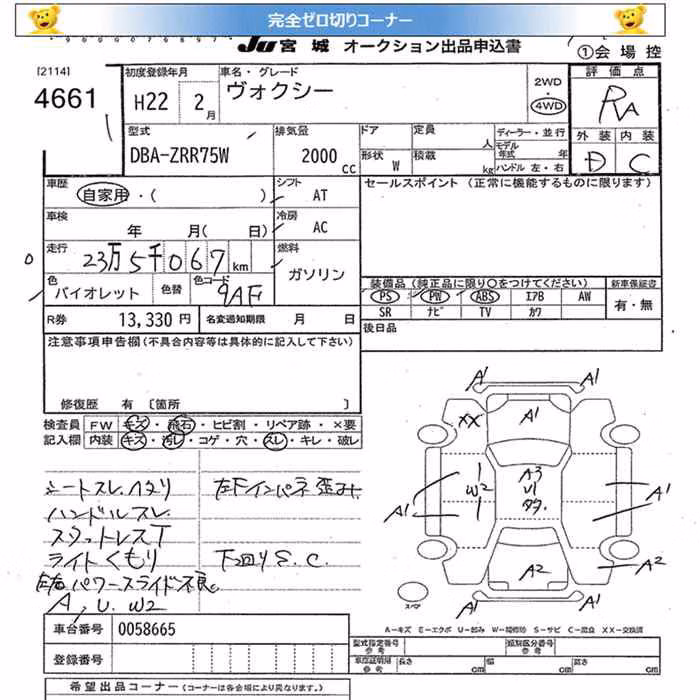 完全ゼロ切りコーナー
JU 宮城 オークション出品申込書
①会場控
[2114]
4661
初度登録年月
H22 2月
車名・グレード
ヴォクシー
2WD
・
4WD
評価点
RA
外装 内装
D C
型式
DBA-ZRR75W
排気量
2000 cc
ドア
定員 人
ディーラー・並行
モデル年式 年
形状 W
積載 kg
ハンドル 左・右
車歴
自家用・( )
シフト
AT
セールスポイント (正常に機能するものに限ります)
車検
年 月(日)
冷房
AC
走行
23万5千067km
燃料
ガソリン
色
バイオレット
色替
色コード
9AF
装備品(純正品に限り○をつけてください)
新車保証書
PS PW ABS エアB AW
有・無
SR ナビ TV カワ
R券 13,330円
名変通知期限 月 日
後日品
注意事項申告欄(不具合内容等は具体的に記入して下さい)
修復歴 有〔箇所 〕
検査員記入欄
FW キズ・飛石・ヒビ割・リペア跡・×要
内装 キズ・汚レ・コゲ・穴・スレ・キレ・破レ
シートスレ、ヘタリ
左下インパネ歪み
ハンドルスレ
スタットレスT
ライトくもり
下回りS.C.
左右パワースライド不良
A、U、W2
A1 A1
A1
XX
W2
A3
U1
A1
A1
A2
A2
A1 A1
スペア
A-キズ E-エクボ U-凹み W-補修跡 S-サビ C-腐食 XX-交換済
車台番号 0058665
登録番号
型式指定番号
参考
類別区分番号
参考
車庫証明用
参考
長さ cm 幅 cm 高さ cm
希望出品コーナー(コーナーは各会場により異なります。)